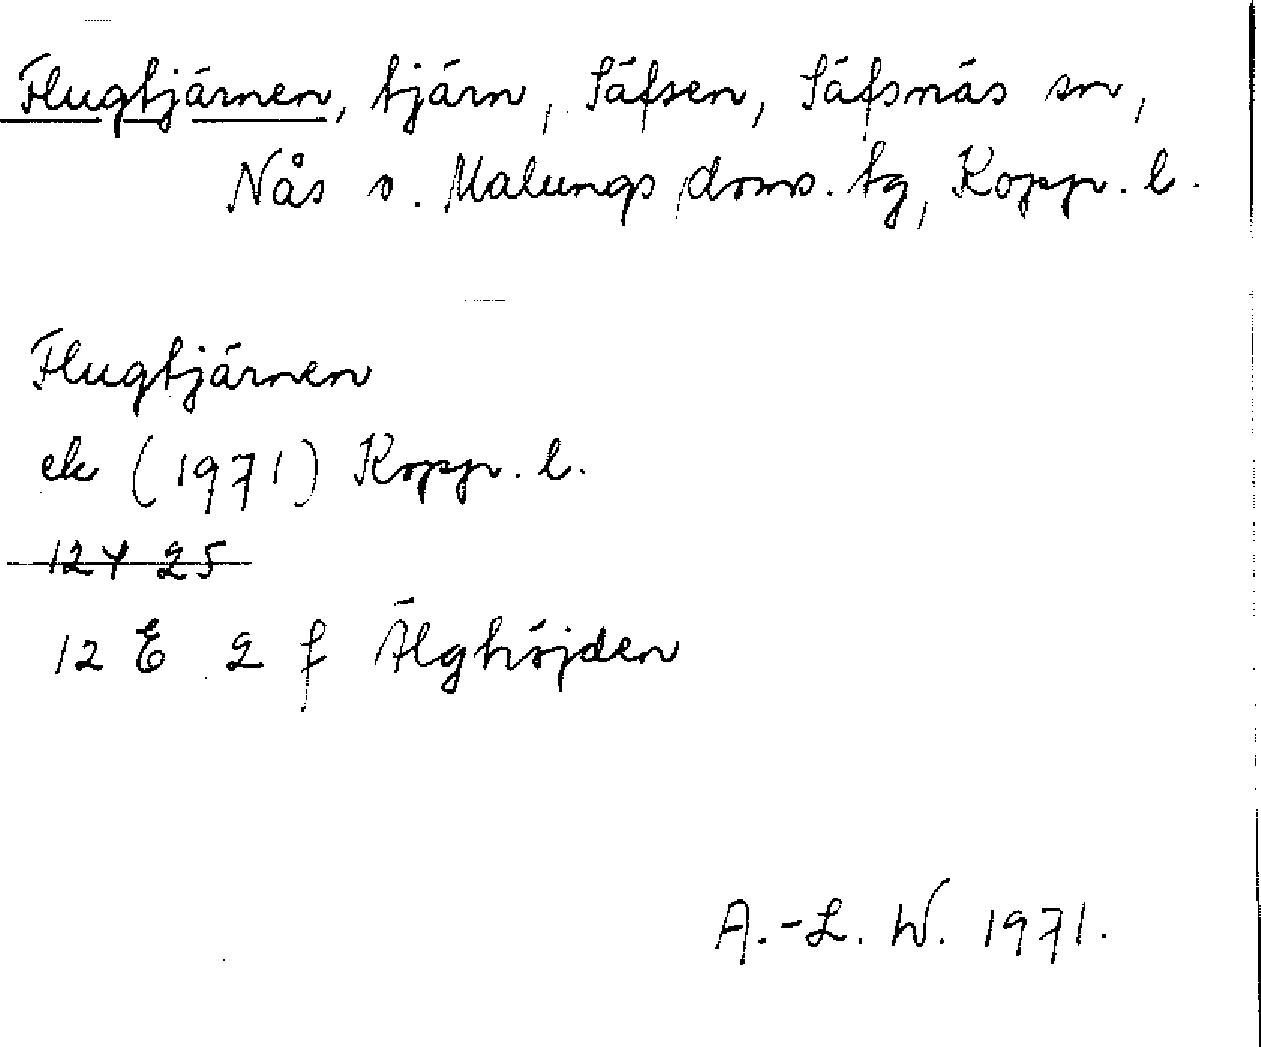 Flugtjärnen, tjärn, Säfsen, Säfsnäs sn,
Nås o. Malungs doms. tg, Kopp. l.
Flugtjärnen
ek (1971) Kopp. l.
12 E 2 f Älghöjden
A.-L. W. 1971.